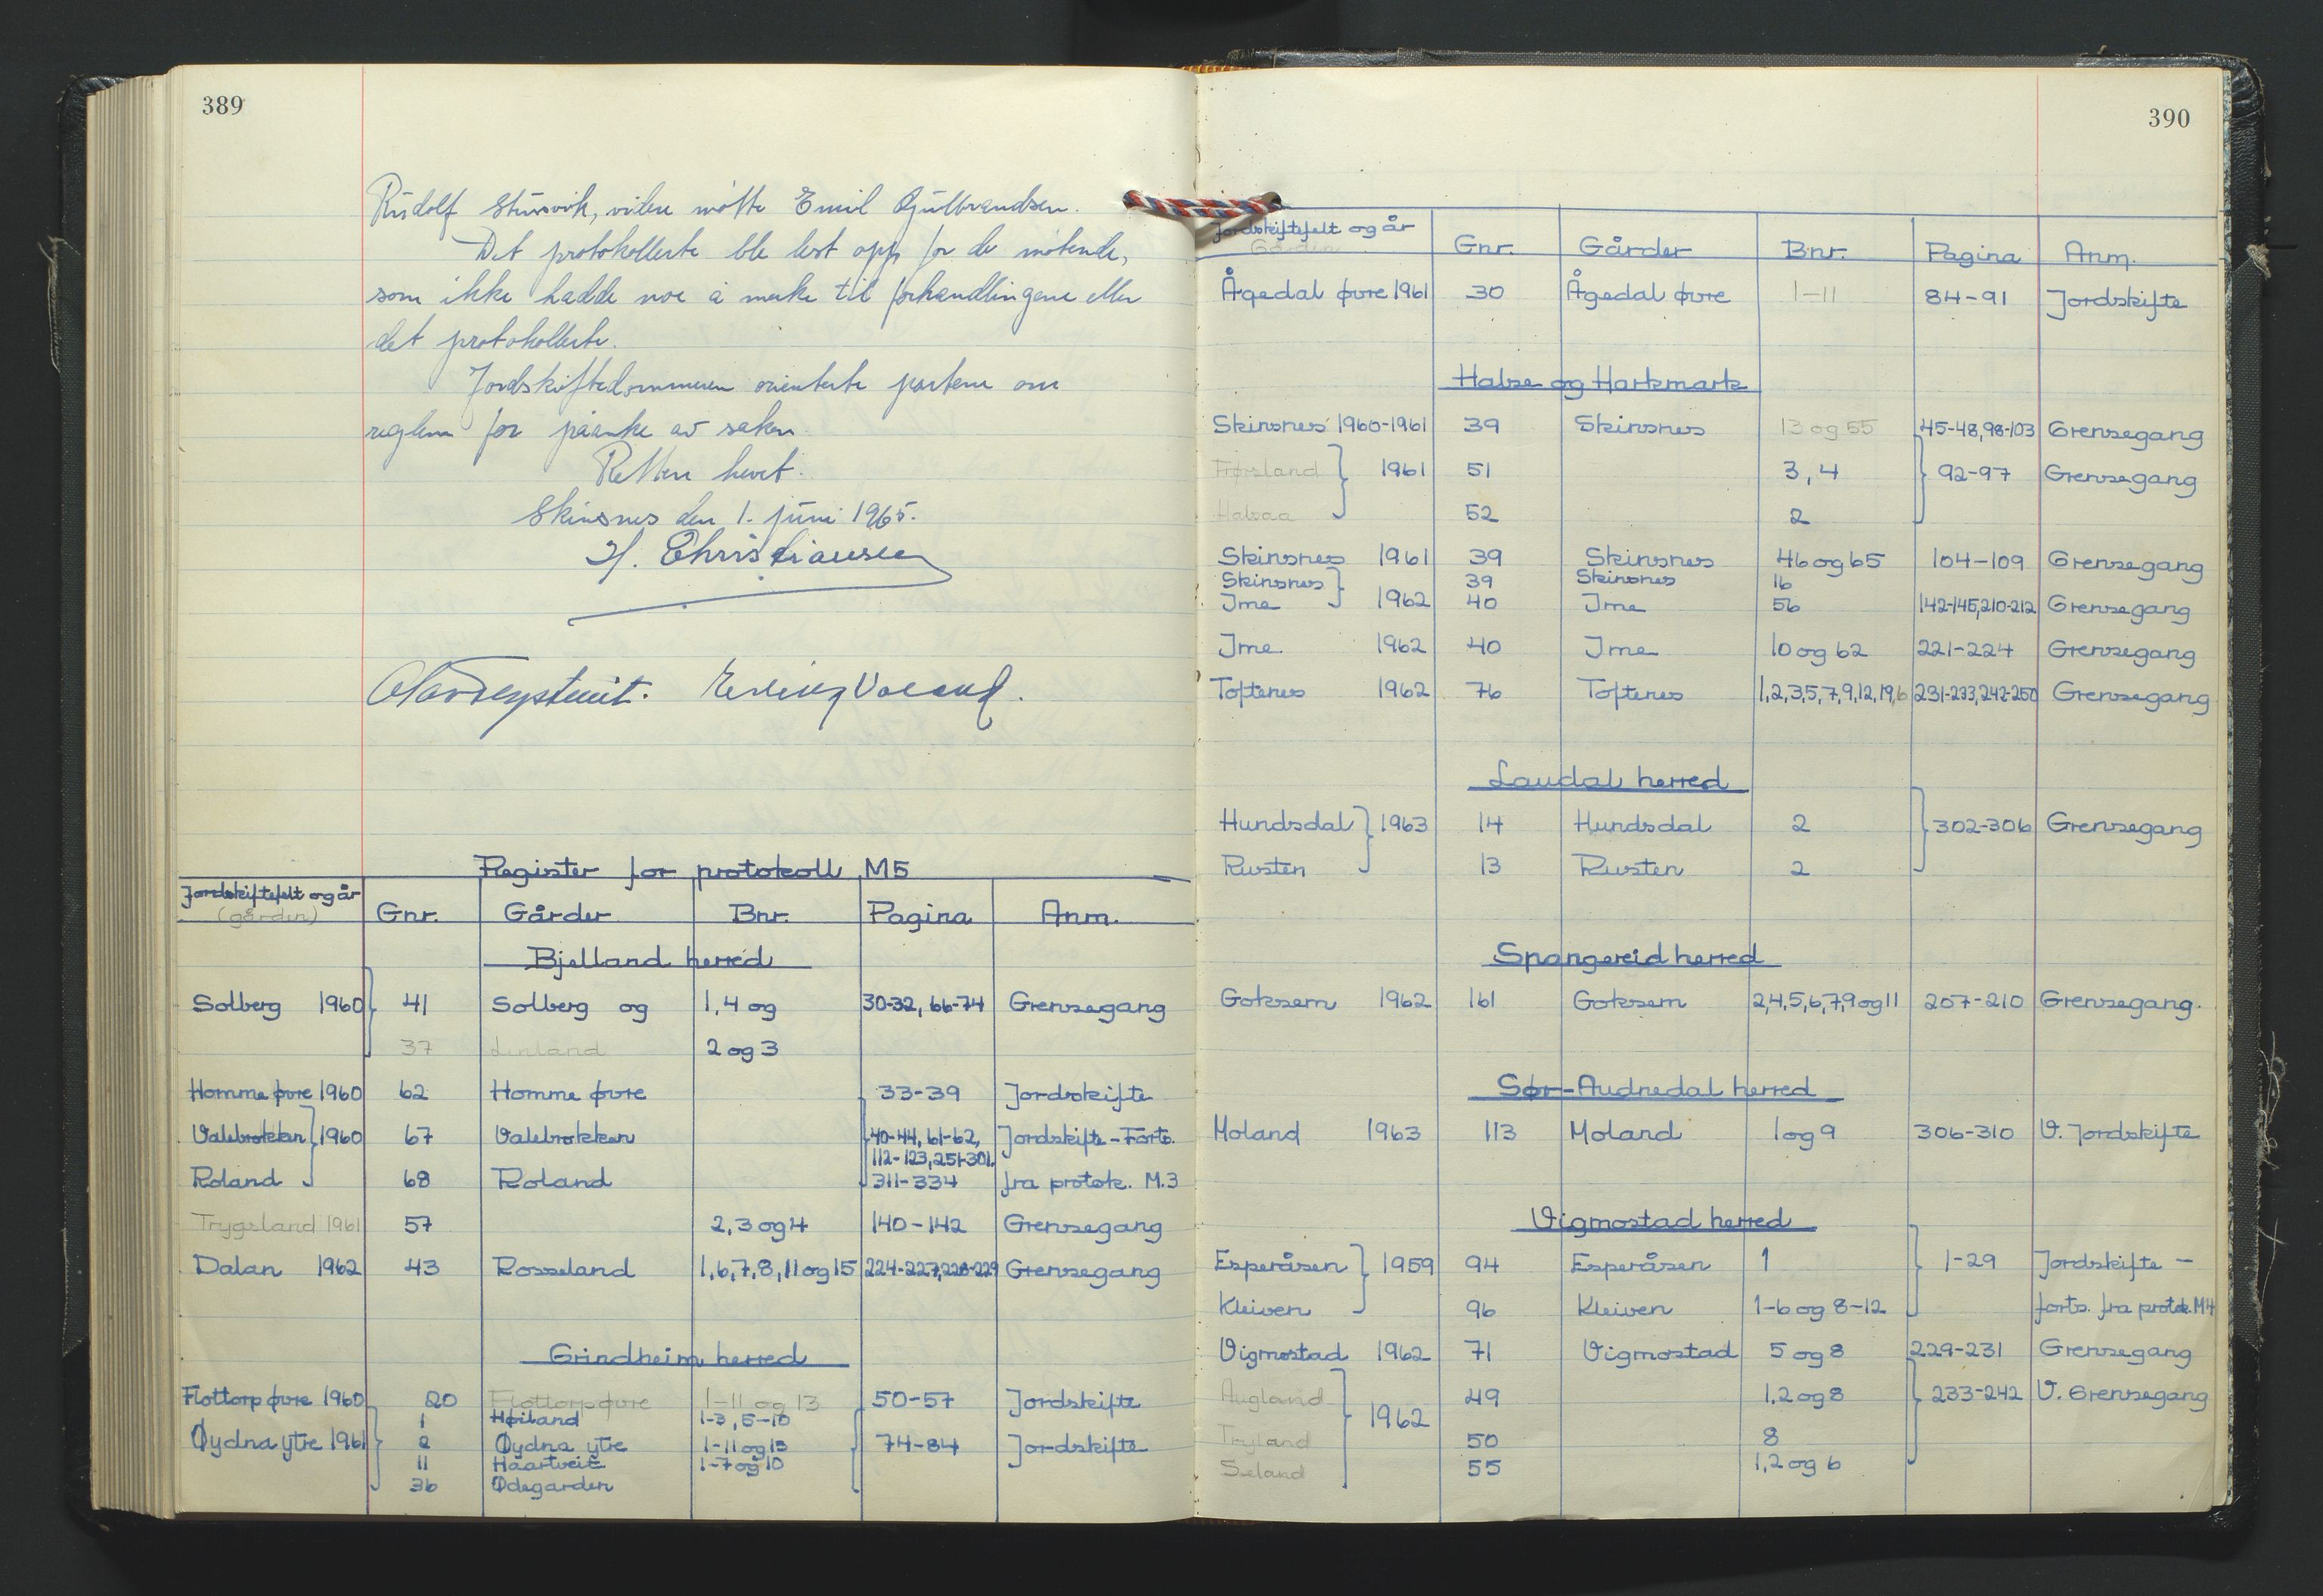 389
Rudolf Stusvik, videre møtte Emil Gulbrandsen.
Det protokollerte ble lest opp for de møtende,
som ikke hadde noe å merke til forhandlingene eller
det protokollerte.
Jordskiftedommeren orienterte partene om
reglene for påanke av saken.
Retten hevet.
Skinsnes den 1. juni 1965.
H. Christiansen
Erling Valand.
Register for protokoll M5
Jordskiftefelt og år (gården) Gnr. Gårder Bnr. Pagina Anm.
Bjelland herred
Solberg 1960 41 Solberg og 1, 4 og 30-32, 66-74 Grensegang
37 Linland 2 og 3
Homme øvre 1960 62 Homme øvre 33-39 Jordskifte
Valebrokken 1960 67 Valebrokken 40-44, 61-62, Jordskifte - Forts.
112-123, 251-301,
Roland 68 Roland 311-334 fra protok. M.3
Trygsland 1961 57 2, 3 og 4 140-142 Grensegang
Dalan 1962 43 Rosseland 1, 6, 7, 8, 11 og 15 224-227, 228-229 Grensegang
Grindheim herred
Flottorp øvre 1960 20 Flottorp øvre 1-11 og 13 50-57 Jordskifte
1 Høiland 1-3, 5-10
Øydna ytre 1961 2 Øydna ytre 1-11 og 13 74-84 Jordskifte
11 Haartveit 1-7 og 10
36 Ødegarden
390
Jordskiftefelt og år Gården Gnr. Gårder Bnr. Pagina Anm.
Ågedal øvre 1961 30 Ågedal øvre 1-11 84-91 Jordskifte
Halse og Harkmark
Skinsnes 1960-1961 39 Skinsnes 13 og 55 45-48, 98-103 Grensegang
Frøsland 1961 51 3, 4 92-97 Grensegang
Halsaa 52 2
Skinsnes 1961 39 Skinsnes 46 og 65 104-109 Grensegang
Skinsnes 39 Skinsnes 16
Ime 1962 40 Ime 56 142-145, 210-212 Grensegang
Ime 1962 40 Ime 10 og 62 221-224 Grensegang
Toftenes 1962 76 Toftenes 1, 2, 3, 5, 7, 9, 12, 19, 6 231-233, 242-250 Grensegang
Laudal herred
Hundsdal 1963 14 Hundsdal 2 302-306 Grensegang
Rusten 13 Rusten 2
Spangereid herred
Goksem 1962 161 Goksem 2, 4, 5, 6, 7, 9 og 11 207-210 Grensegang.
Sør-Audnedal herred
Moland 1963 113 Moland 1 og 9 306-310 U. Jordskifte
Vigmostad herred
Esperåsen 1959 94 Esperåsen 1 1-29 Jordskifte -
Kleiven 96 Kleiven 1-6 og 8-12 forts. fra protok. M4
Vigmostad 1962 71 Vigmostad 5 og 8 229-231 Grensegang
Augland 49 1, 2 og 8 233-242 U. Grensegang
1962
Tryland 50 8
Seland 55 1, 2 og 6